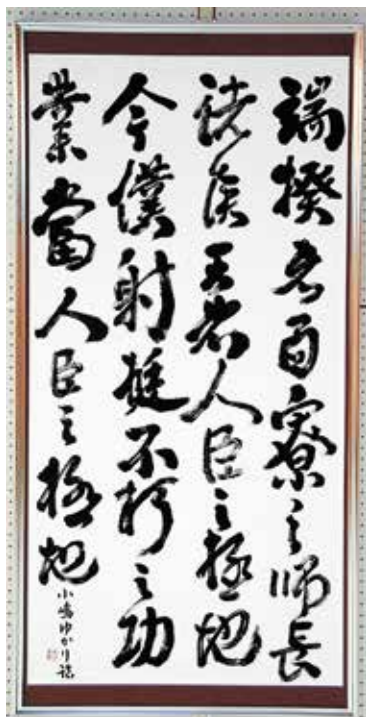 端揆者百寮之師長
諸侯王者人臣之極地
今僕射挺不朽之功
業當人臣之極地
小嶋ゆかり臨